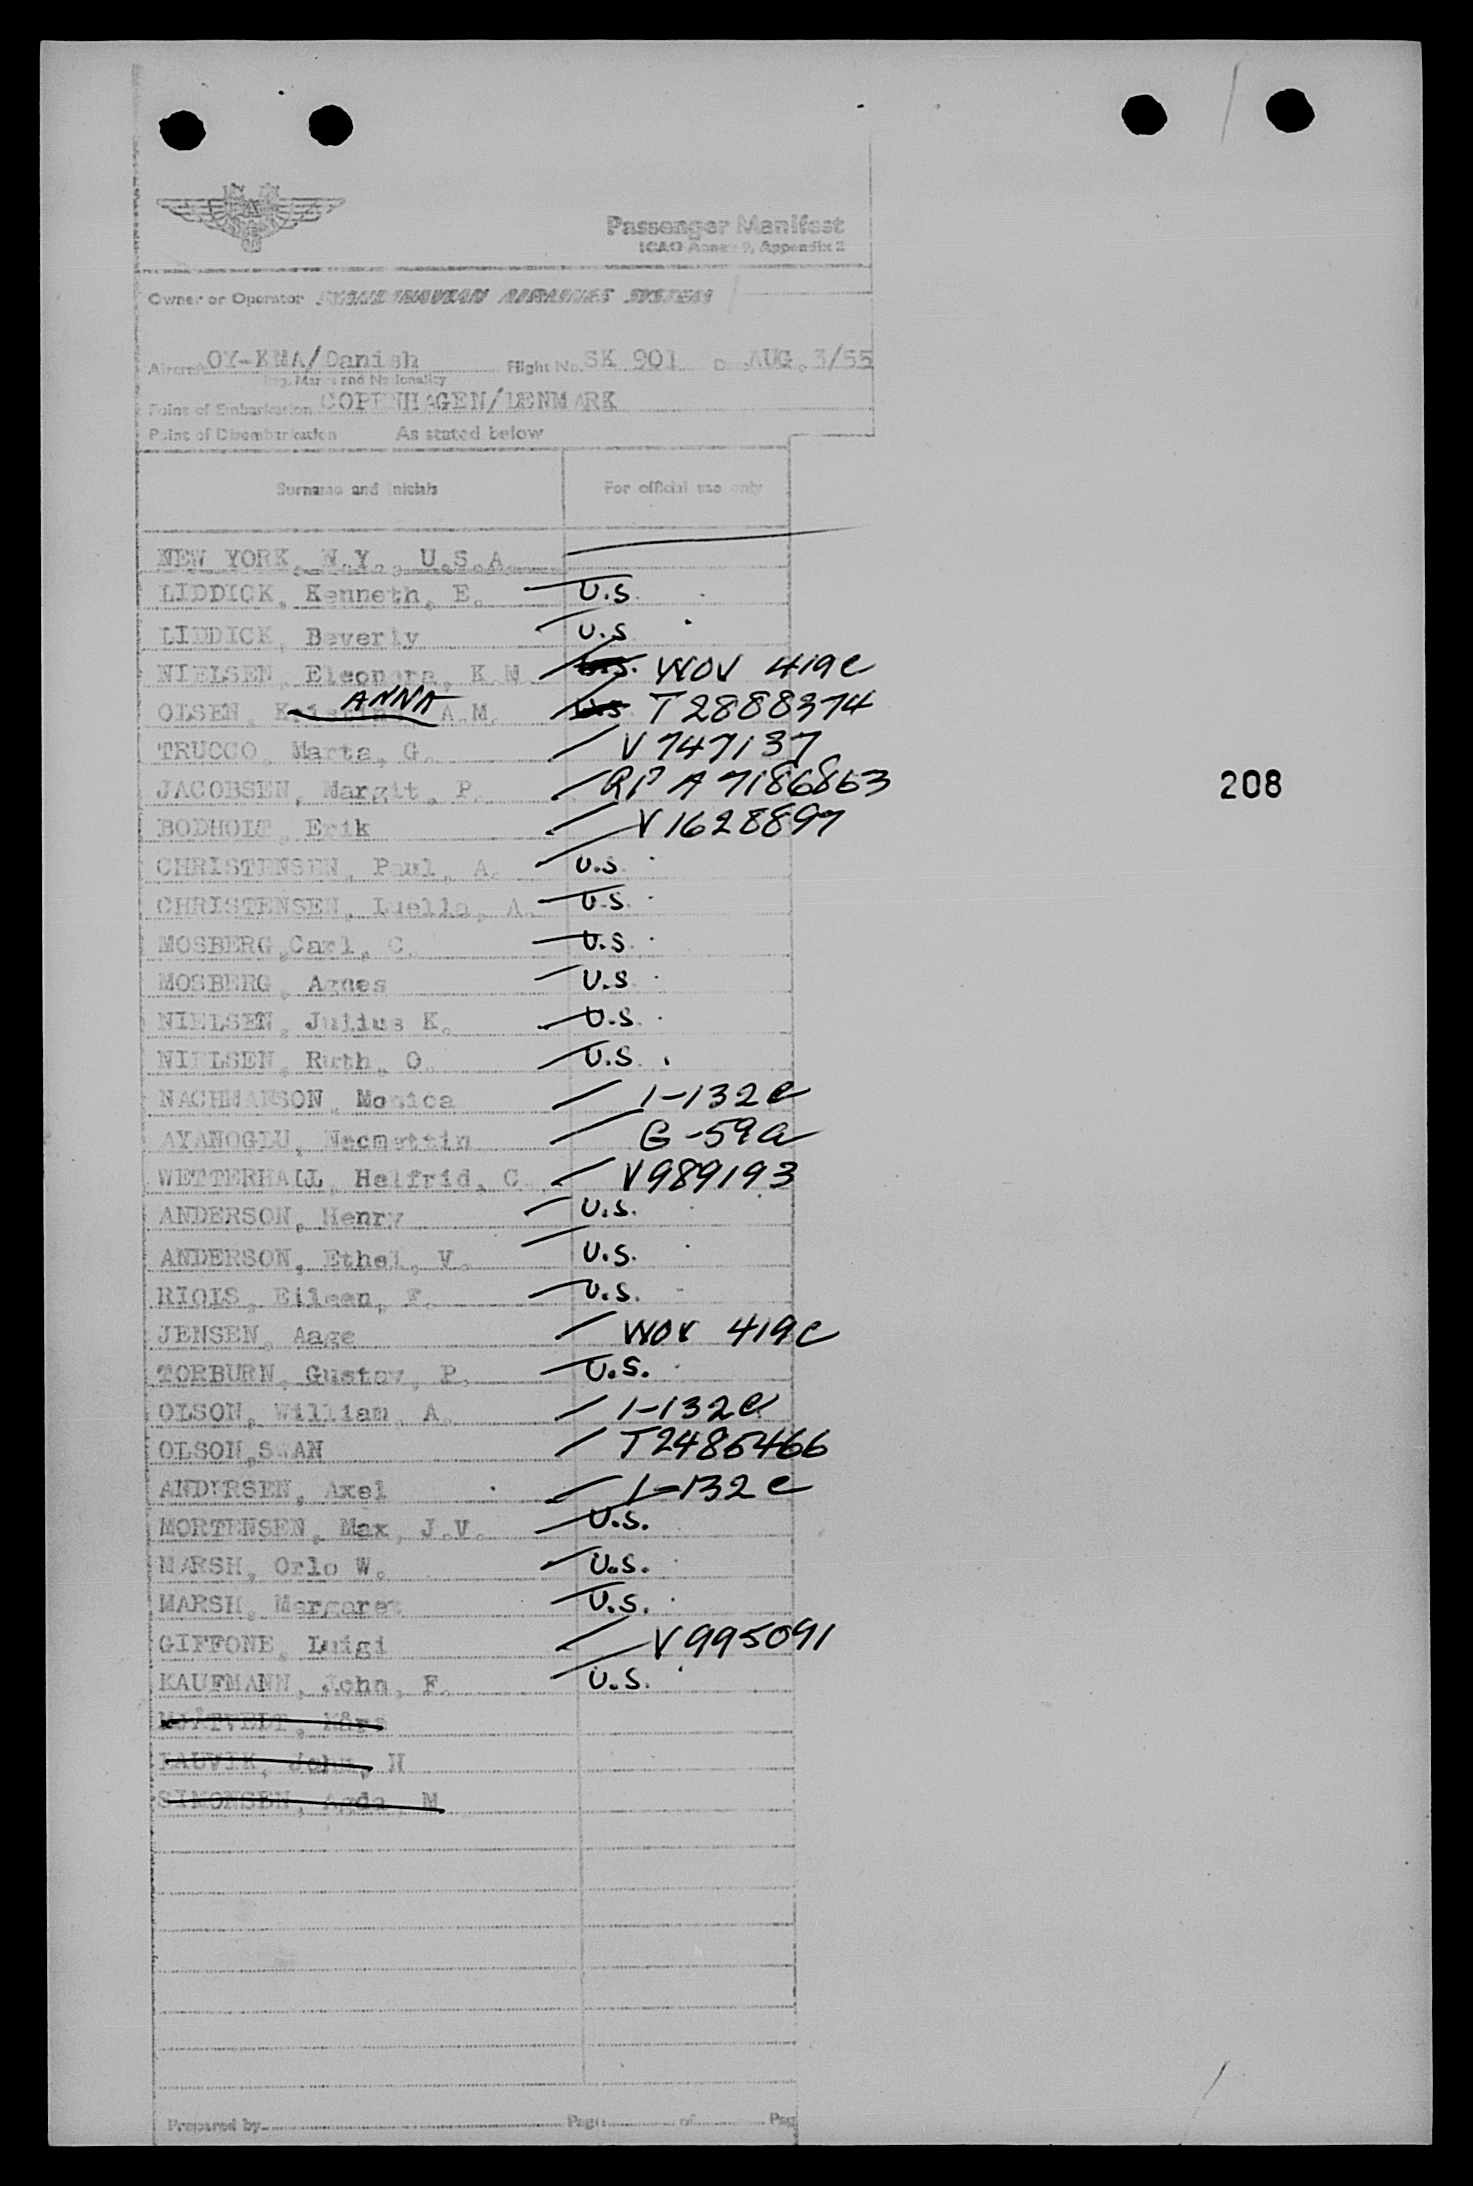 Passenger Manifest
ICAO Annex 9, Appendix 2
Owner or Operator SCANDINAVIAN AIRLINES SYSTEM
Aircraft OY-KMA/Danish Flight No. SK 901 Date AUG. 3/55
Reg. Marks and Nationality
Point of Embarkation COPENHAGEN/DENMARK
Point of Disembarkation As stated below
Surname and initials For official use only
NEW YORK, N.Y., U.S.A.
LIDDICK, Kenneth, E. U.S.
LIDDICK, Beverly U.S
NIELSEN, Eleonora, K.M. U.S. WOV 419c
ANNA
OLSEN, Kristine, A.M. U.S T2888374
TRUCCO, Marta, G. V747137
JACOBSEN, Margit, P. RP A7186863
BODHOLT, Erik V1628897
CHRISTENSEN, Paul, A. U.S.
CHRISTENSEN, Luella, A. U.S.
MOSBERG,Carl, C. U.S.
MOSBERG, Agnes U.S
NIELSEN, Julius K. U.S.
NIELSEN, Ruth, O. U.S.
NACHMANSON, Monica 1-132c
AYANOGLU, Necmettin G-59a
WETTERHALL, Helfrid, C. V989193
ANDERSON, Henry U.S.
ANDERSON, Ethel, V. U.S.
RIOIS, Eileen, F. U.S.
JENSEN, Aage WOV 419c
TORBURN, Gustav, P. U.S.
OLSON, William, A. 1-132c
OLSON,SWAN T2485466
ANDERSEN, Axel 1-132c
MORTENSEN, Max, J.V. U.S.
MARSH, Orlo W. U.S.
MARSH, Margaret U.S.
GIFFONE, Luigi V995091
KAUFMANN, John, F. U.S.
MJÅTVEDT, Kåre
LAUVIK, John, N
SIMONSEN, Agda, M
208
Prepared by Page of Pag